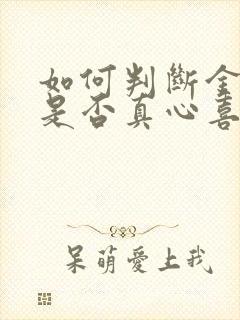 如何判斷金
是否真心喜
呆萌愛上我